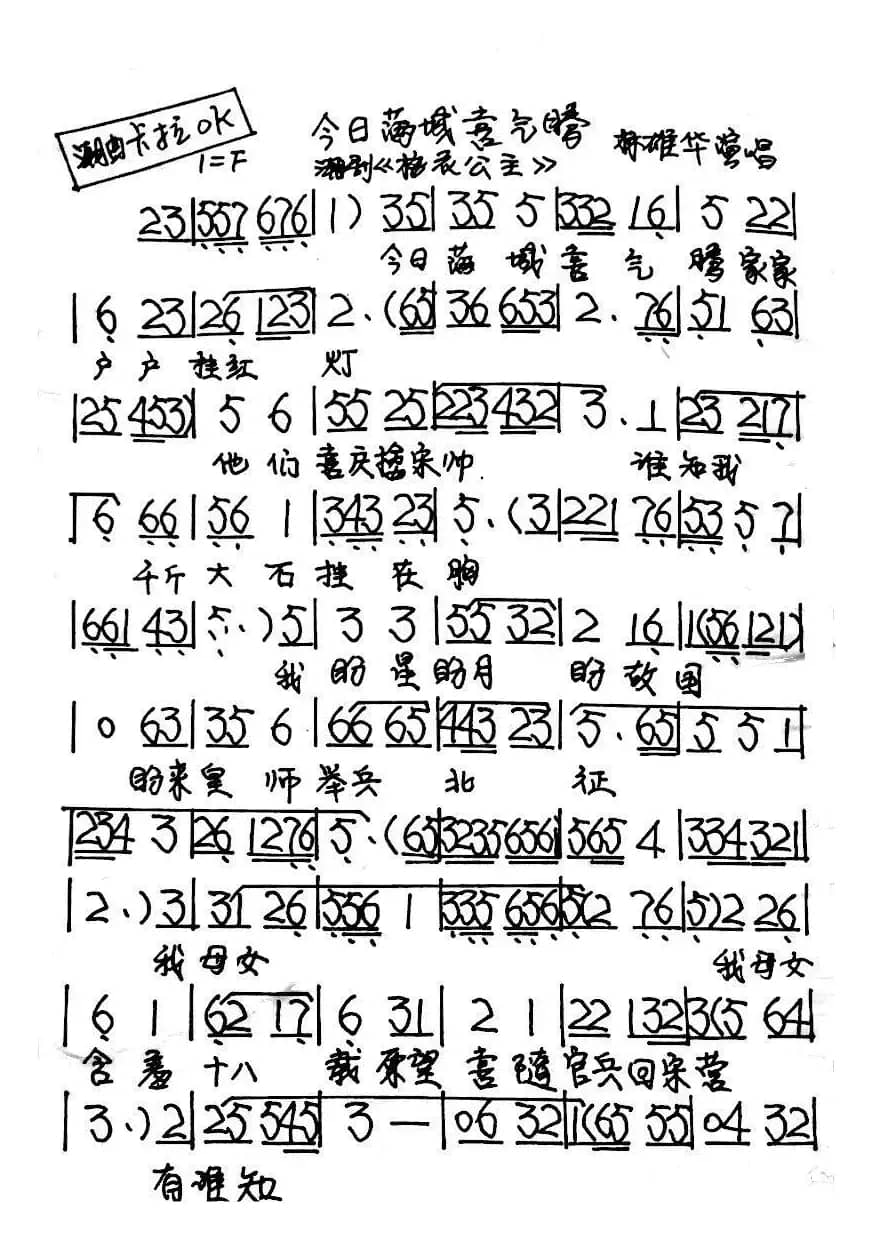 潮曲卡拉OK 今日海城喜气腾 林雄华演唱
1=F 潮剧《梅衣公主》
23|557 676|1) 35|35 5|332 16|5 22|
今日海城喜气腾家家
|6 23|26 123|2.(65|36 653|2. 76|51 63|
户户挂红灯
|25 453)|5 6|55 25|223 432|3. 1|23 217|
他们喜庆擒宋帅 谁知我
6 66|56 1|343 23|5.(3|221 76|53 5 7|
千斤大石挂在胸
|661 43|5.)5|3 3|55 32|2 16|1(56 121)|
我盼星盼月盼故国
|0 63|35 6|66 65|443 23|5. 65|5 5 1|
盼来皇师举兵北征
|234 3|26 1276|5.(65|3235 656|565 4|334 321|
|2.)3|31 26|556 1|335 656|5(2 76|5)2 26|
我母女 我母女
|6 1|62 17|6 31|2 1|22 132|3(5 64|
含羞十八载原望喜随官兵回宋营
|3.)2|25 545|3 —|06 32|1(65 55|04 32|
有谁知